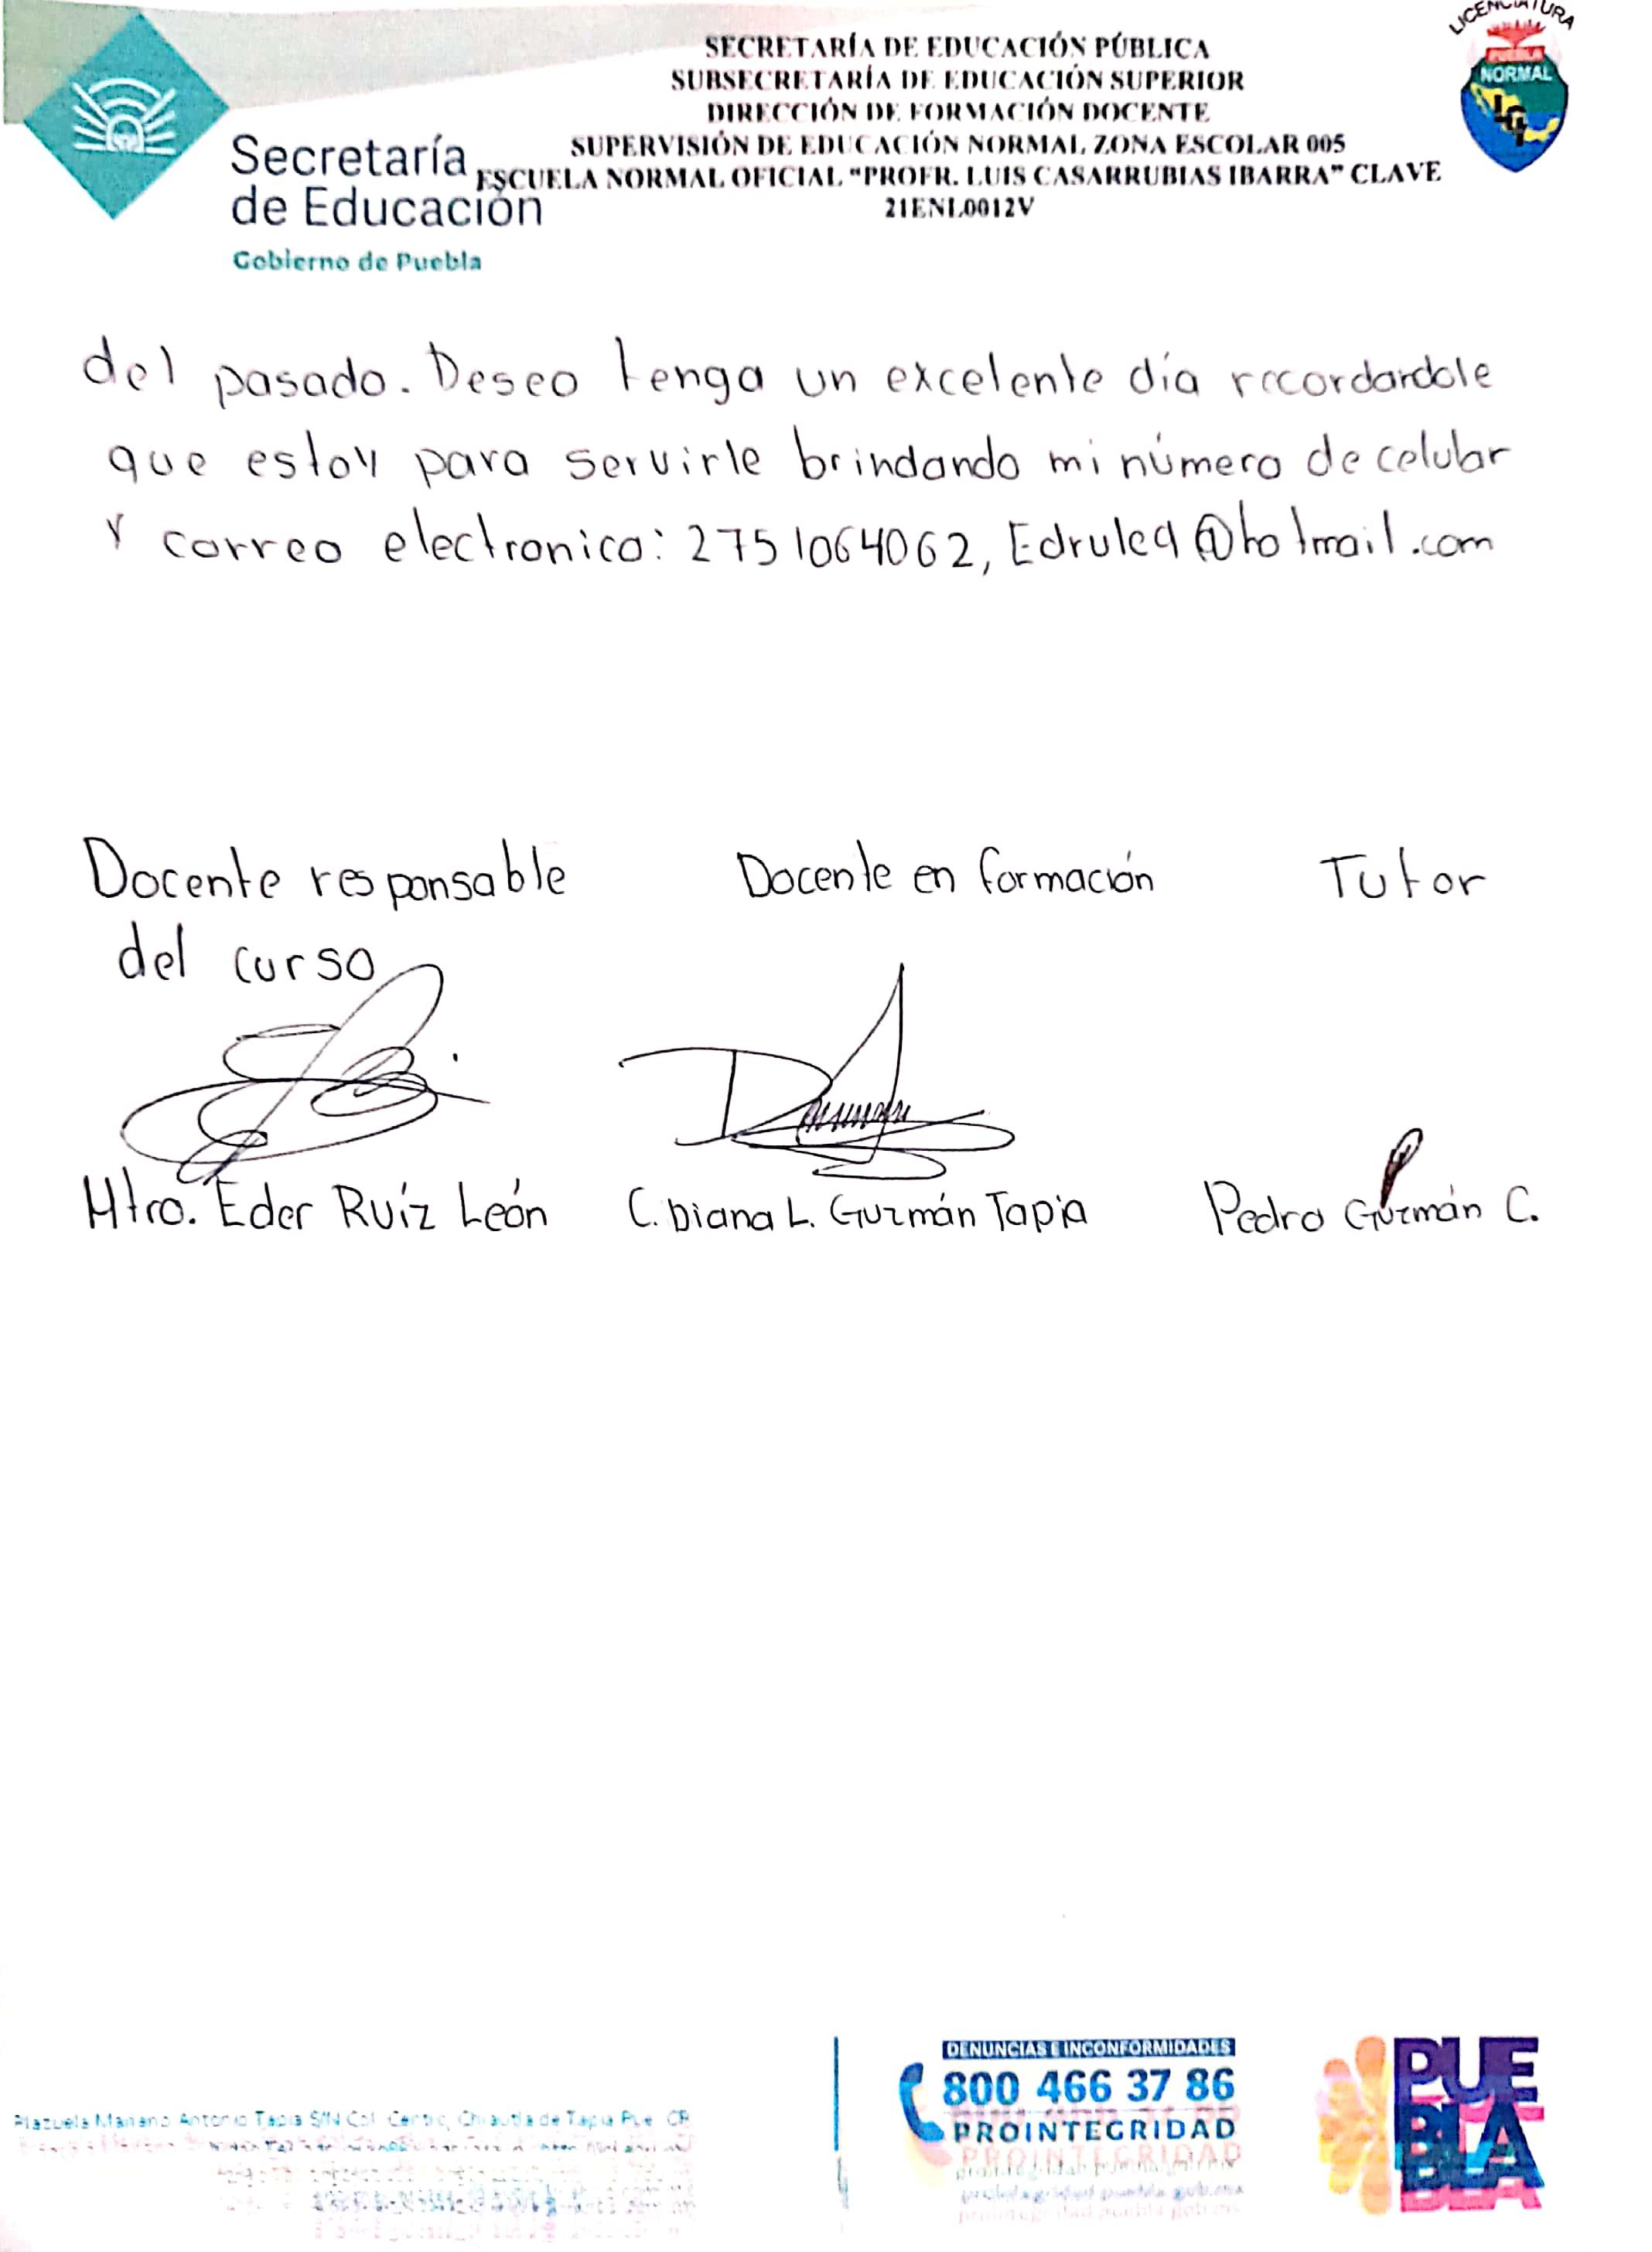 LICENCIATURA
PUEBLA
NORMAL
SECRETARÍA DE EDUCACIÓN PÚBLICA
SUBSECRETARÍA DE EDUCACIÓN SUPERIOR
DIRECCIÓN DE FORMACIÓN DOCENTE
SUPERVISIÓN DE EDUCACIÓN NORMAL ZONA ESCOLAR 005
ESCUELA NORMAL OFICIAL "PROFR. LUIS CASARRUBIAS IBARRA" CLAVE
21ENL0012V
Secretaría
de Educación
Gobierno de Puebla
del pasado. Deseo tenga un excelente día recordardole
que estoy para servirle brindando mi número de celular
y correo electronico: 2751064062, Edrule9@hotmail.com
Docente responsable
del curso
Docente en formación
Tutor
Mtro. Eder Ruíz León
C. Diana L. Guzmán Tapia
Pedro Guzmán C.
Plazuela Mariano Antonio Tapia S/N Col. Centro, Chiautla de Tapia Pue. CP.
DENUNCIAS E INCONFORMIDADES
800 466 37 86
PROINTEGRIDAD
PUE
BLA